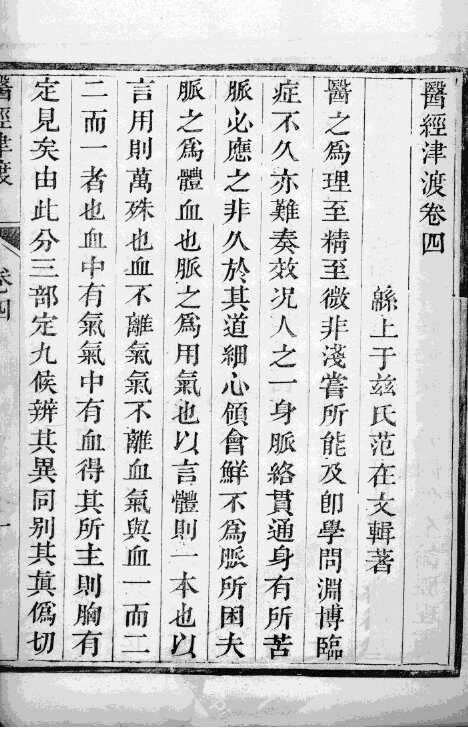 醫經津渡卷四
緜上于兹氏范在文輯著
醫之為理至精至微非淺嘗所能及卽學問淵博臨
症不久亦難奏效况人之一身脈絡貫通身有所苦
脈必應之非久於其道細心領會鮮不為脈所困夫
脈之為體血也脈之為用氣也以言體則一本也以
言用則萬殊也血不離氣氣不離血氣與血一而二
二而一者也血中有氣氣中有血得其所主則胸有
定見矣由此分三部定九候辨其異同别其真偽切
醫經津渡
卷四
一